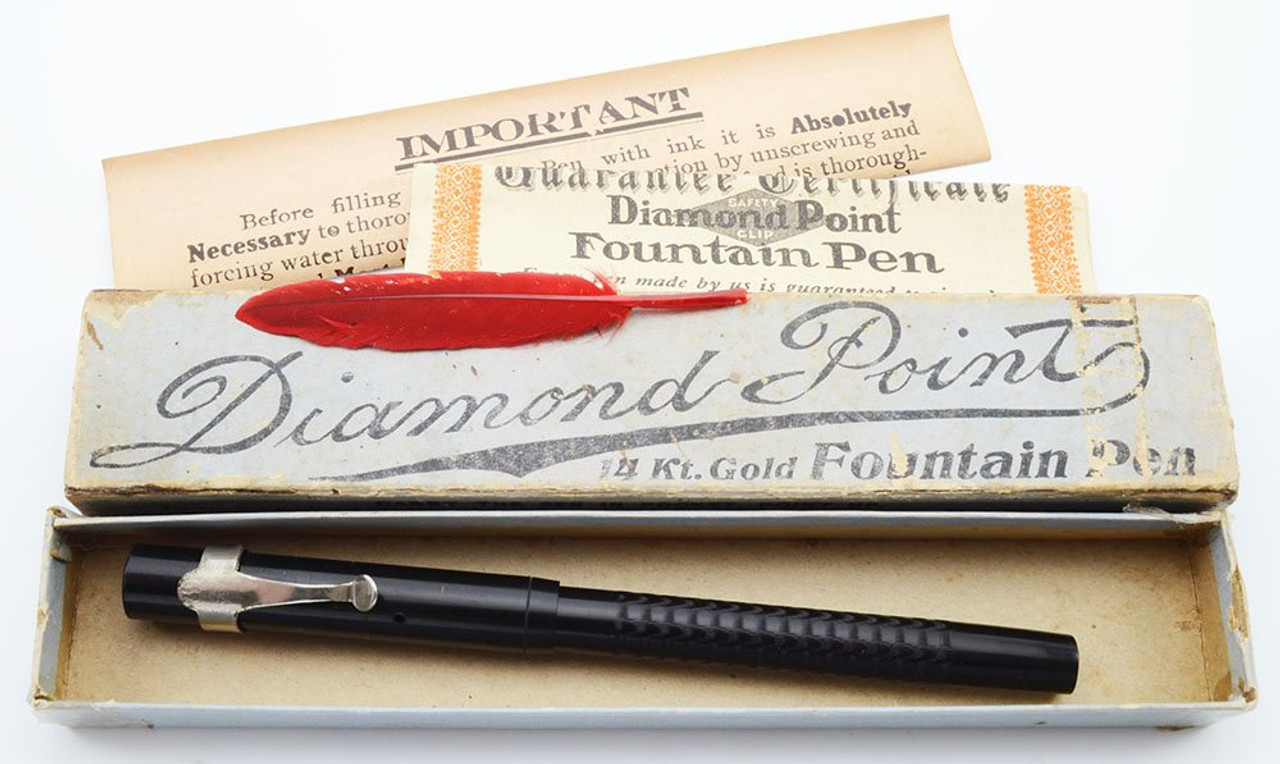 IMPORTANT
Before filling Pen with ink it is Absolutely
Necessary to by unscrewing and
forcing water is thorough-
Guarantee Certificate
SAFETY
Diamond Point
CLIP
Fountain Pen
made by us is guaranteed
Diamond Point
14 Kt. Gold Fountain Pen